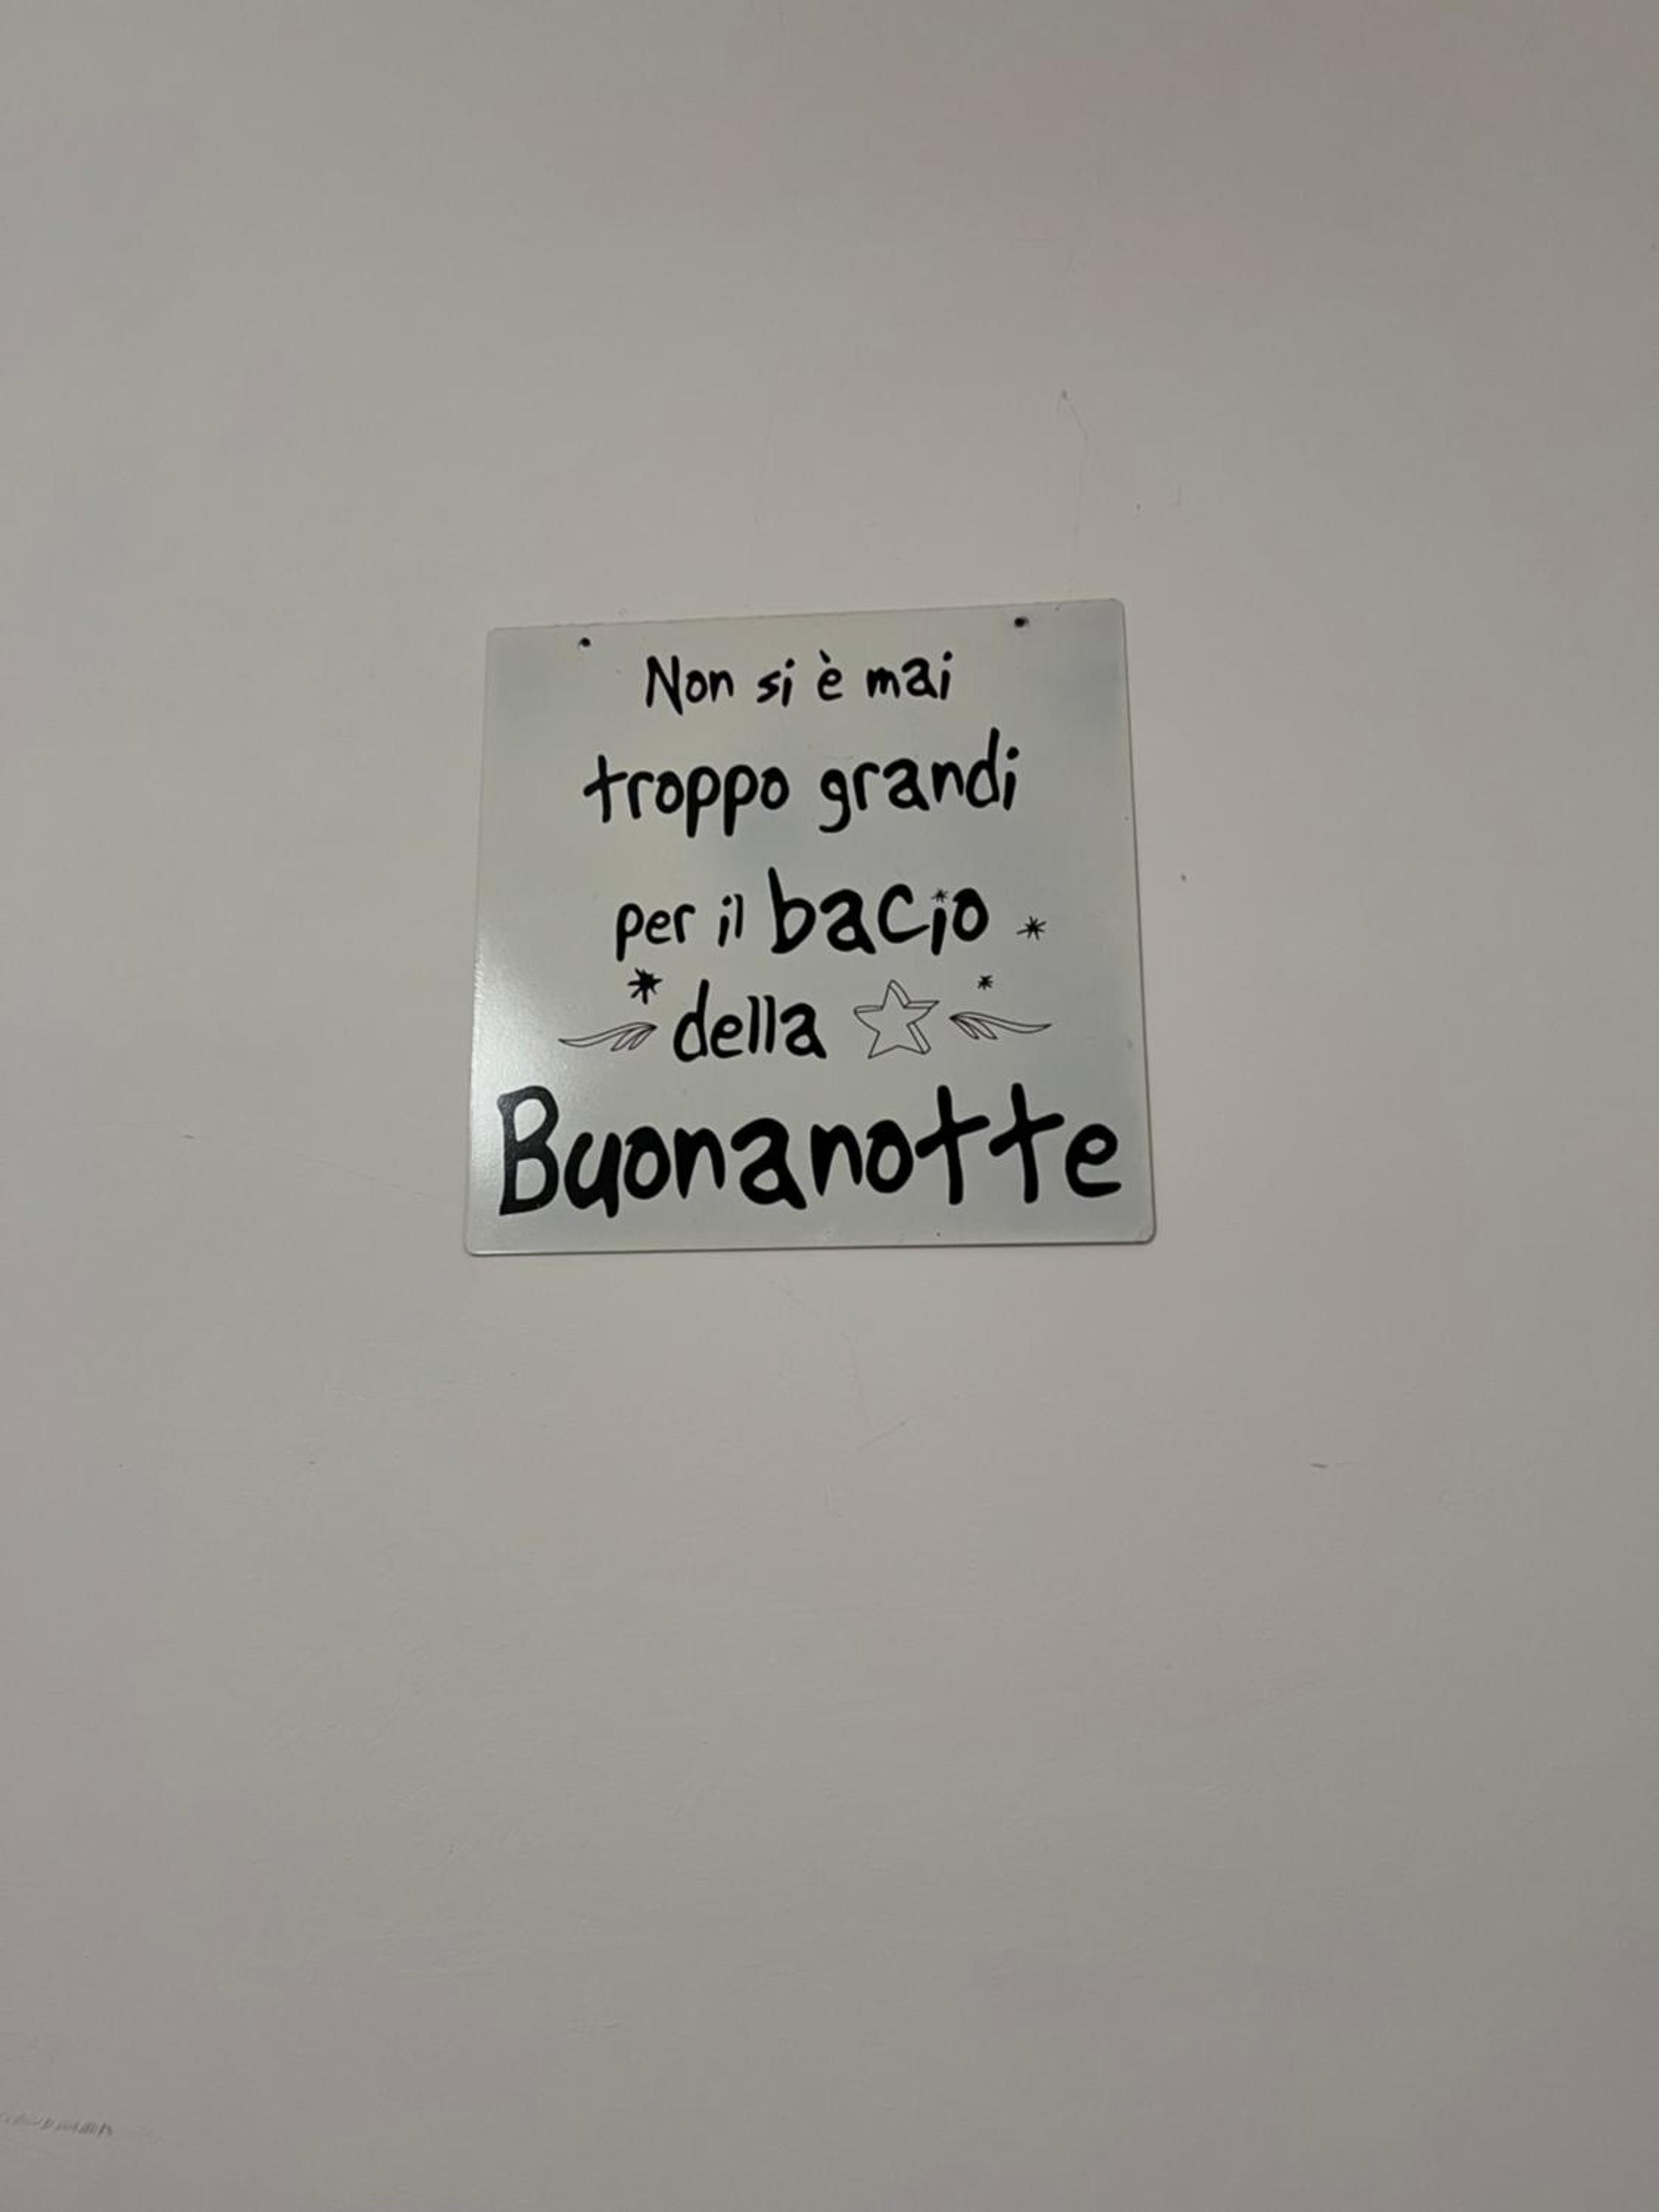 Non si è mai
troppo grandi
per il bacio
della
Buonanotte